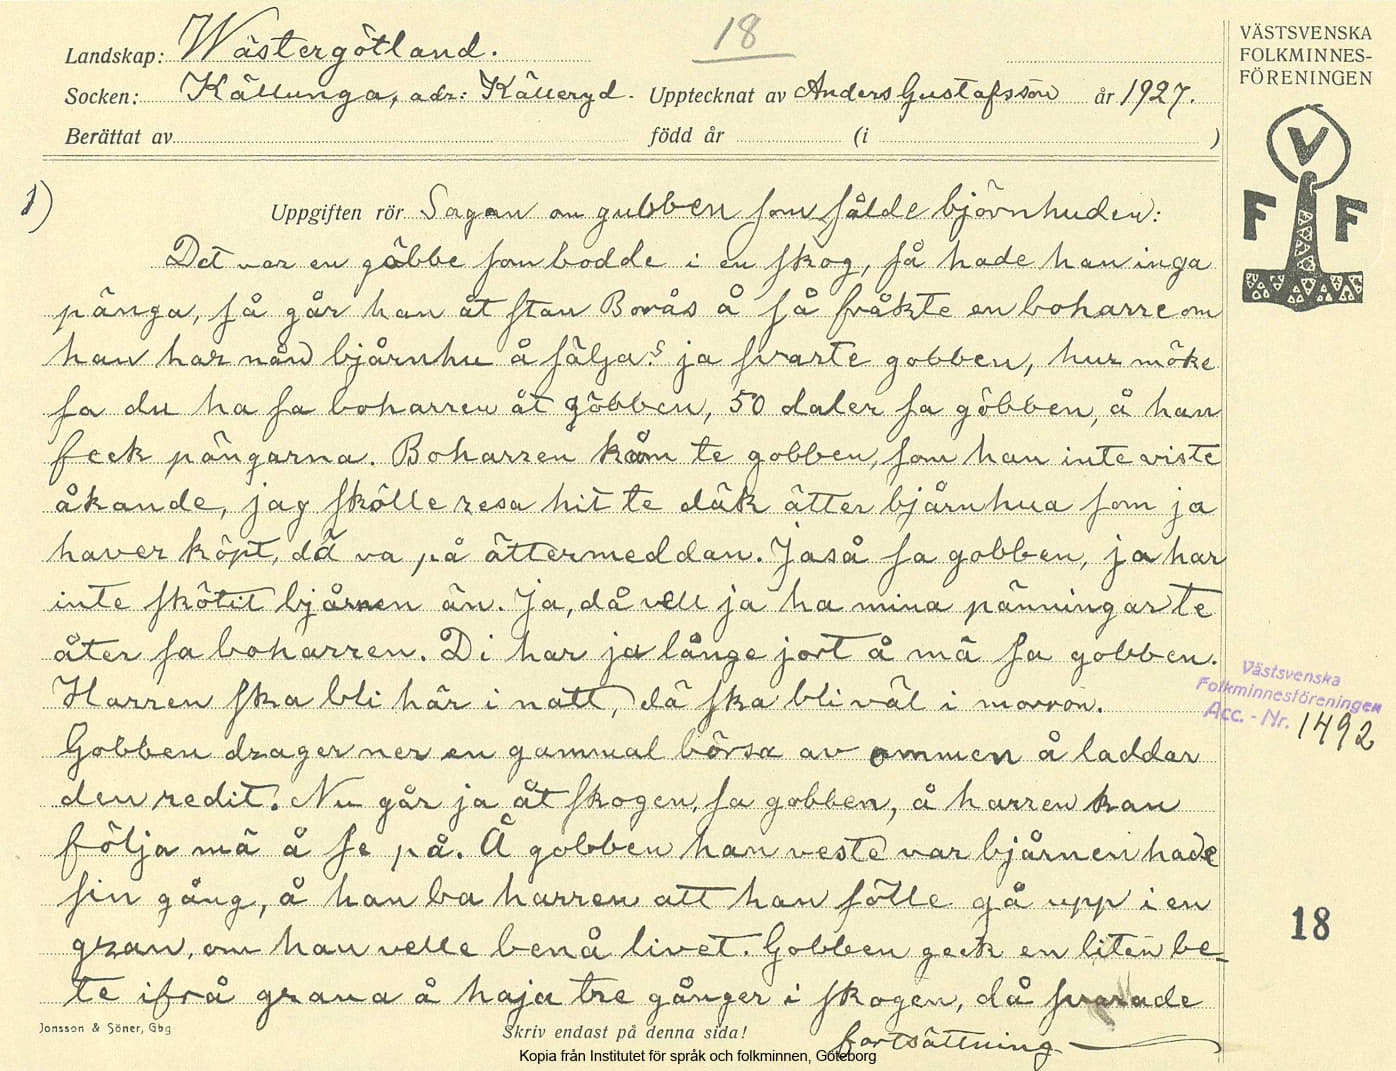 18
VÄSTSVENSKA
FOLKMINNES-
FÖRENINGEN
Landskap: Wästergötland.
Socken: Källunga, adr: Källeryd. Upptecknat av Anders Gustafsson år 1927.
Berättat av född år (i )
V
F F
1)
Uppgiften rör Sagan om gubben som sålde björnhuden:
Det var en gôbbe som bodde i en skog, så hade han inga
pänga, så går han åt stan Borås å så fråkte en boharre om
han har nån bjårnhu å sälja? ja svarte gobben, hur möke
sa du ha sa boharren åt gôbben, 50 daler sa gôbben, å han
feck pängarna. Boharren kåm te gobben, som han inte viste
åkande, jag skôlle resa hit te däk ätter bjårnhua som ja
haver köpt, dä va på ättermeddan. Jaså sa gobben, ja har
inte skôtit bjårnen än. Ja, då vell ja ha mina pänningar te
åter sa boharren. Di har ja länge jort å mä sa gobben.
Harren ska bli här i natt, dä ska bli väl i morron.
Gobben drager ner en gammal börsa av ommen å laddar
den redit. Nu går ja åt skogen, sa gobben, å harren kan
följa mä å se på. Å gobben han veste var bjårnen hade
sin gång, å han ba harren att han fôlle gå upp i en
gran, om han velle benå livet. Gobben geck en liten be-
te ifrå grana å haja tre gånger i skogen, då svarade
fortsättning
Västsvenska
Folkminnesföreningen
Acc. - Nr. 1492
18
Jonsson & Söner, Gbg
Skriv endast på denna sida!
Kopia från Institutet för språk och folkminnen, Göteborg